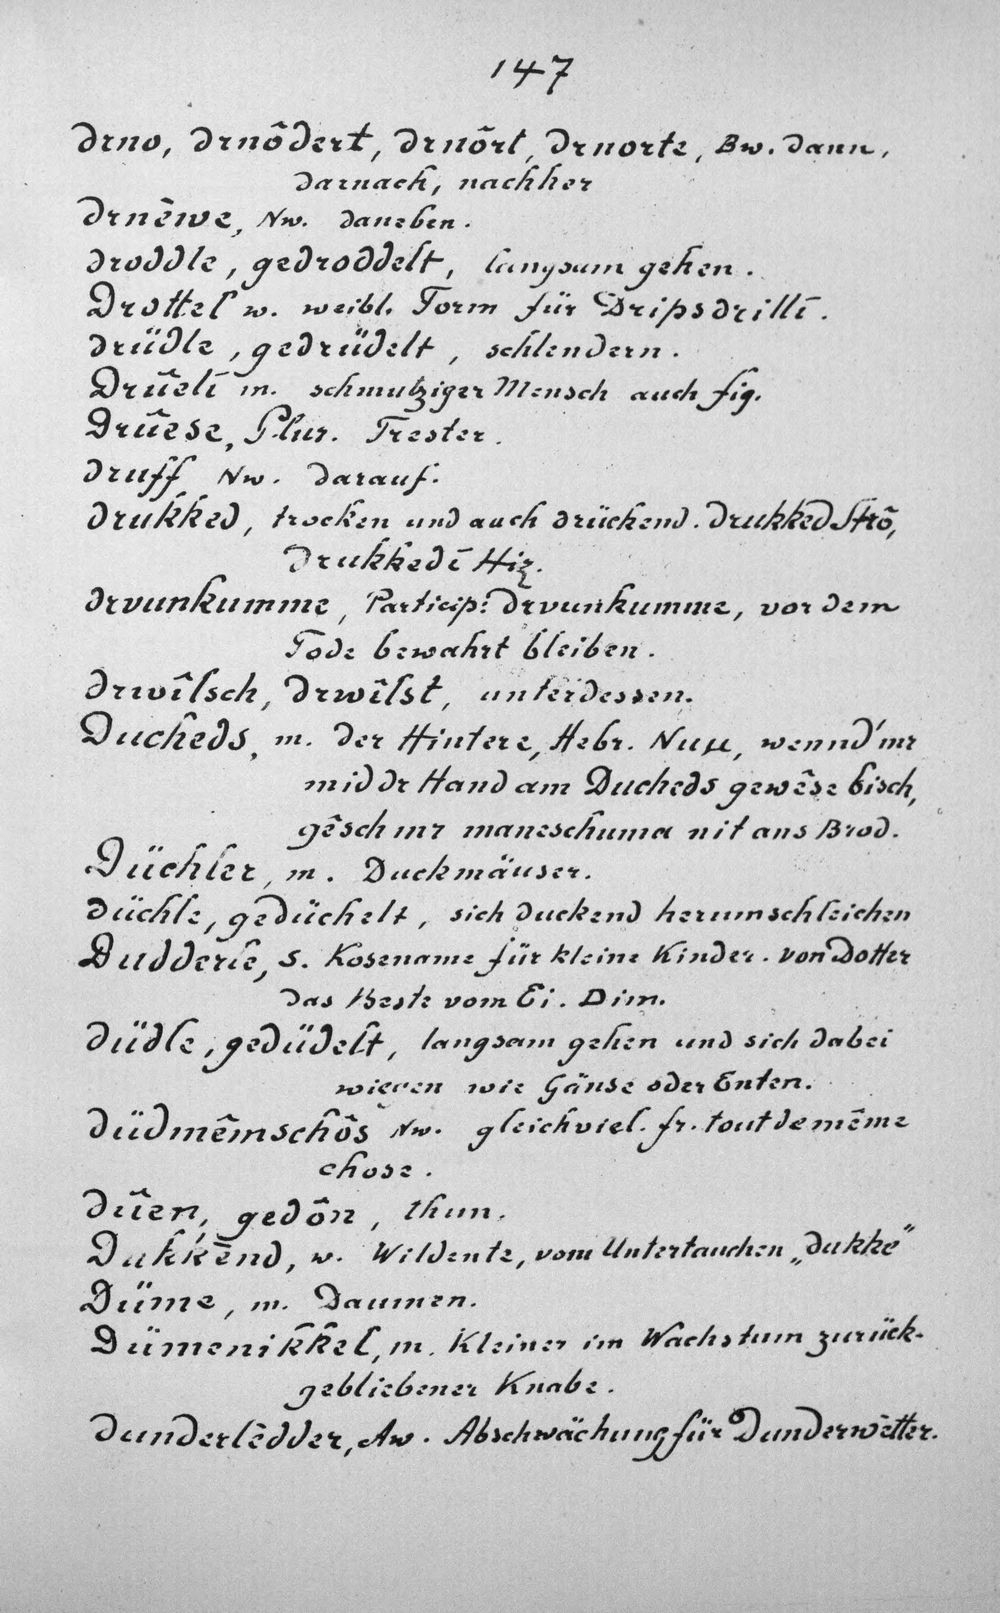 147
drno, drnôdert, drnôrt, drnorte, Bw. dann,
darnach, nachher
drnêwe, Nw. daneben.
droddle, gedroddelt, langsam gehen.
Drottel w. weibl. Form für Dripsdrilli.
drüdle, gedrüdelt, schlendern.
Drûeli m. schmutziger Mensch auch fig.
Drûese, Plur. Trester.
druff Nw. darauf.
drukked, trocken und auch drückend. drukked Strô,
drukkedi Hiz.
drvunkumme, Particip: drvunkumme, vor dem
Tode bewahrt bleiben.
drwîlsch, drwîlst, unterdessen.
Ducheds, m. der Hintere, Hebr. wennd'mr
mid dr Hand am Ducheds gewêse bisch,
gêsch mr maneschuma nit ans Brod.
Düchler, m. Duckmäuser.
düchle, gedüchelt, sich duckend herumschleichen
Dudderle, s. Kosename für kleine Kinder. von Dotter
das Beste vom Ei. Dim.
düdle, gedüdelt, langsam gehen und sich dabei
wiegen wie Gänse oder Enten.
düdmêmschôs Nw. gleichviel. fr. tout de même
chose.
dûen, gedôn, thun.
Dukkênd, w. Wildente, vom Untertauchen „dukke"
Düme, m. Daumen.
Dümenikkel, m. Kleiner im Wachstum zurück-
gebliebener Knabe.
dunderlêdder, Aw. Abschwächung für Dunderwêtter.